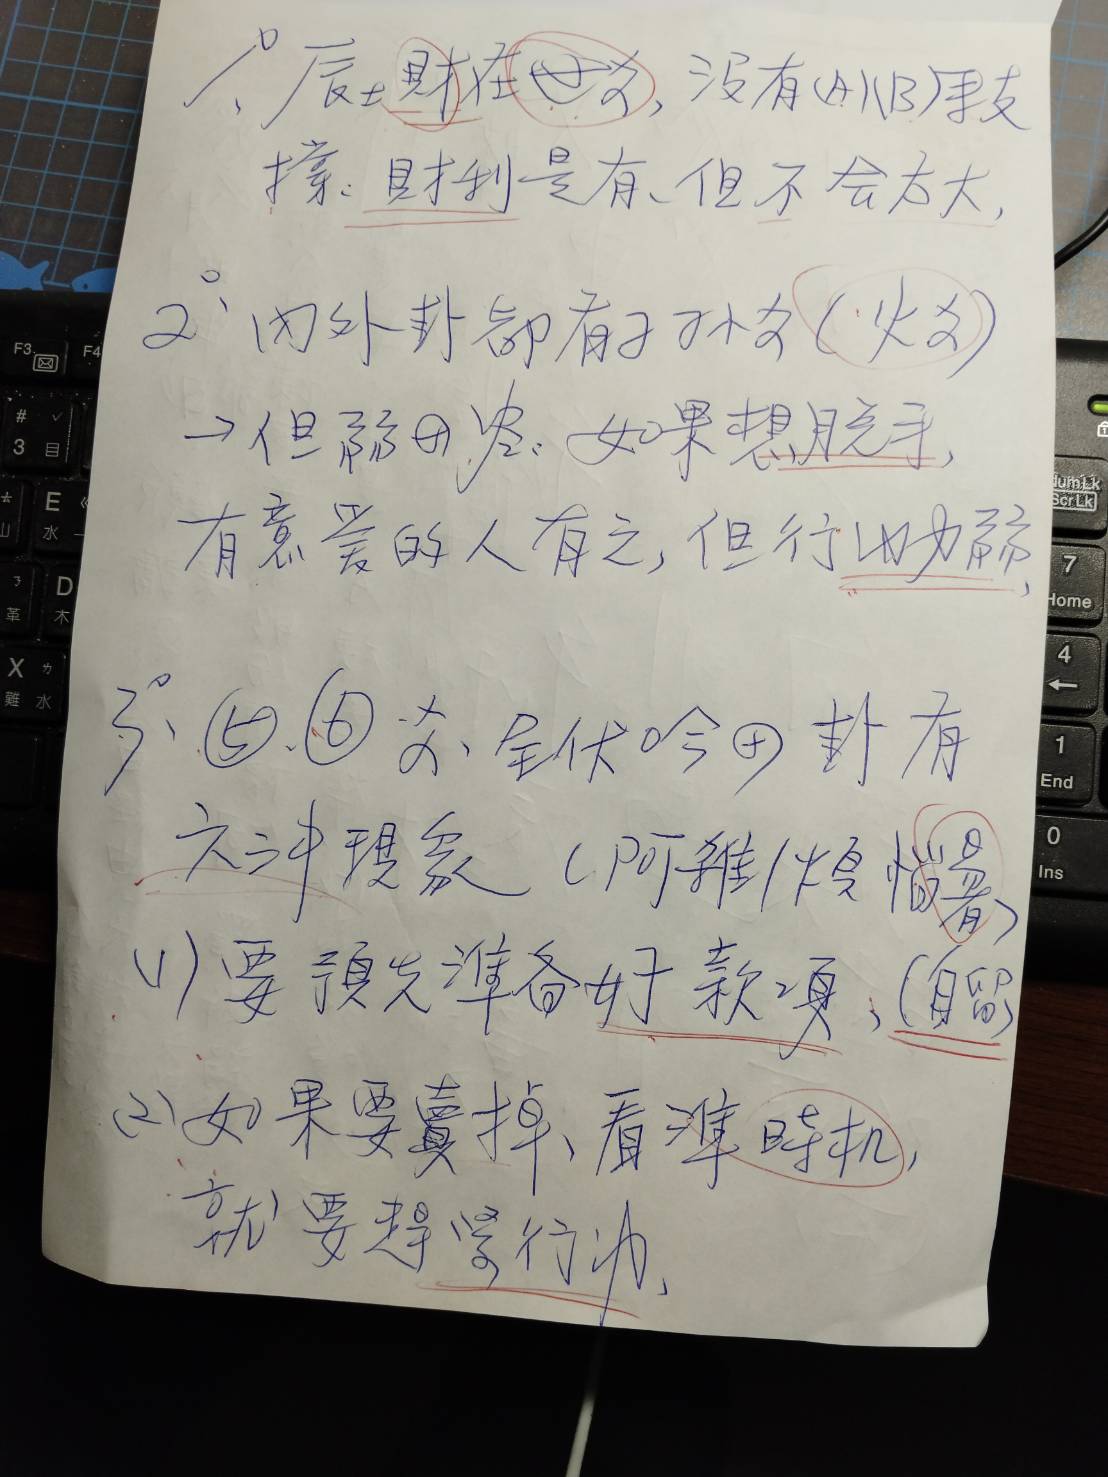 1、辰土財在世爻，沒有(A)(B)爭支
撐、財利是有、但不会太大，
2、內外卦都有子孙爻(火爻)
→但弱田坐、如果想脫手，
有意愛的人有之，但行动力弱，
3、⑤、⑥爻、全伏吟田卦有
六冲現象(阿雜/煩惱著)
(1)要預先準备好款項、(自留)
(2)如果要賣掉、看準時机，
就要趕紧行动、
F3
F4
#
3
E
水
山
革
D
木
X
難
水
NumLk
ScrLk
7
Home
4
←
1
End
0
Ins